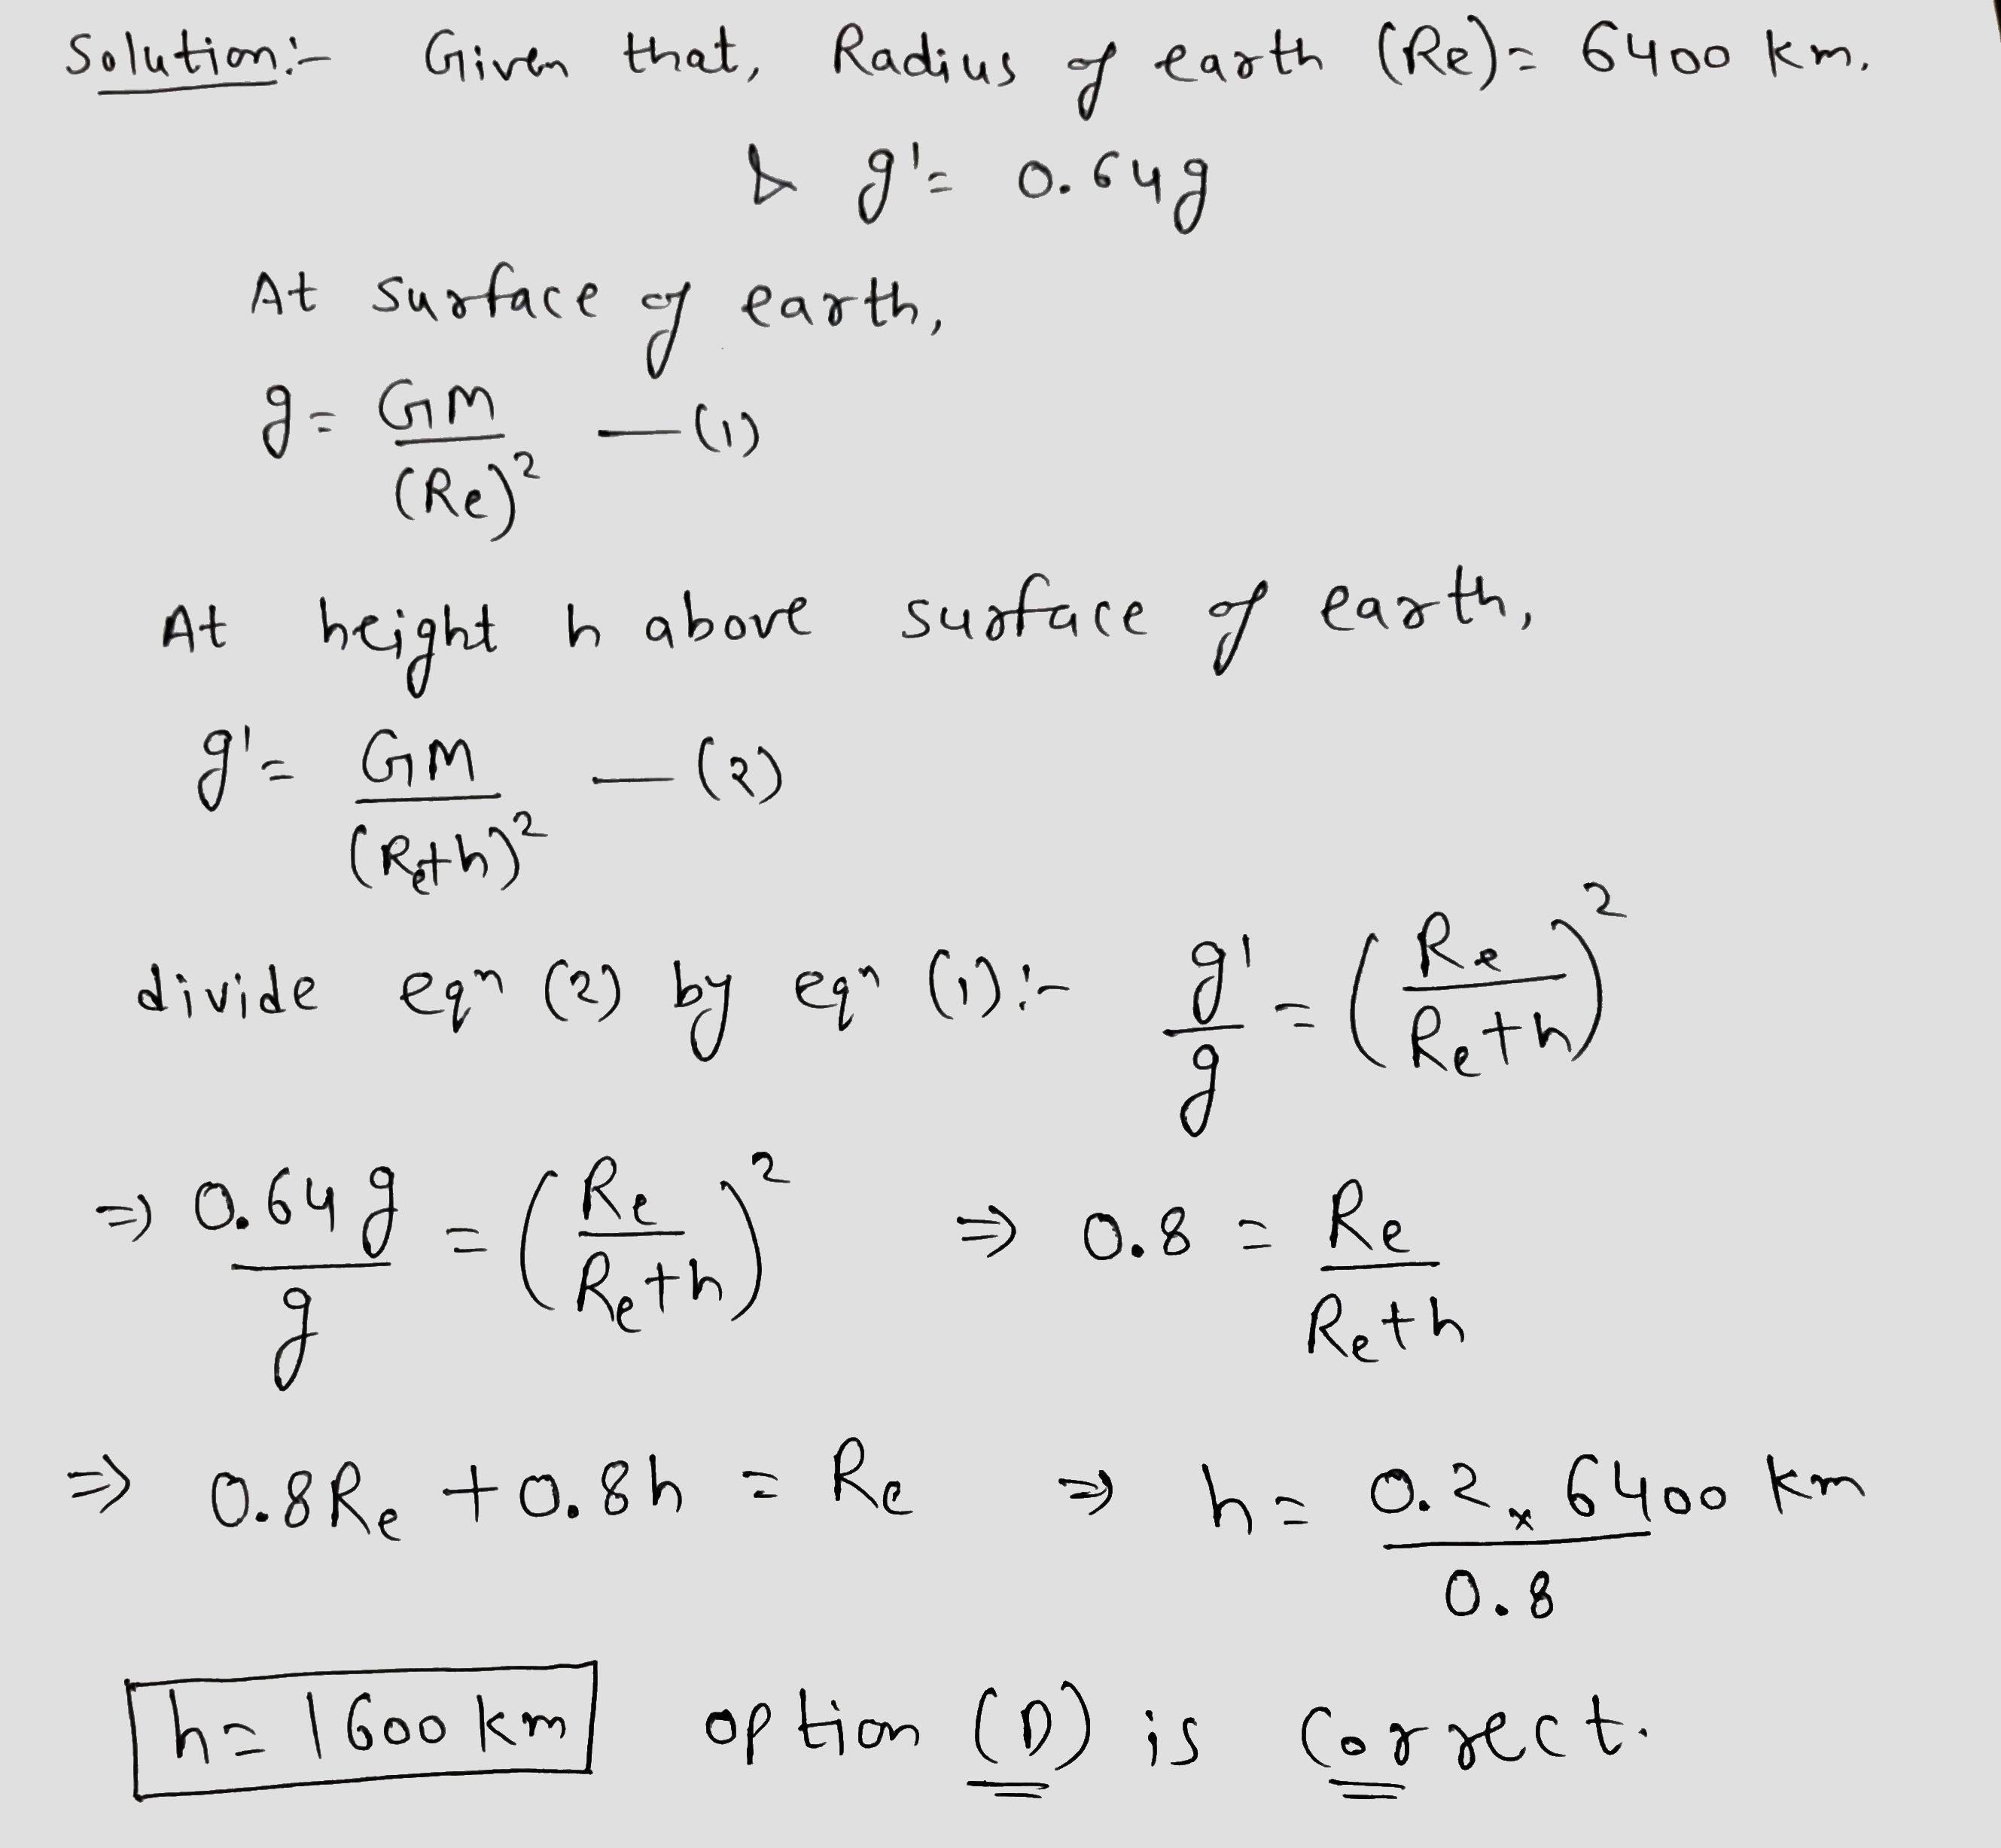 Solution:- Given that, Radius of earth (Re) = 6400 km.
& g' = 0.64g
At surface of earth,
g = GM / (Re)² — (1)
At height h above surface of earth,
g' = GM / (Re+h)² — (2)
divide eqⁿ (2) by eqⁿ (1):- g'/g = (Re / Re+h)²
⇒ 0.64g / g = (Re / Re+h)² ⇒ 0.8 = Re / Re+h
⇒ 0.8Re + 0.8h = Re ⇒ h = 0.2 × 6400 km / 0.8
h = 1600 km option (D) is correct.